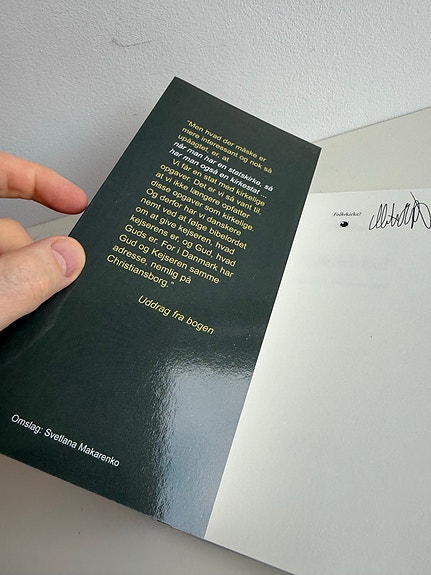 "Men hvad der måske er
mere interessant og nok så
upåagtet, er, at
når man har en statskirke, så
har man også en kirkestat...
Vi får en stat med kirkelige
opgaver. Det er vi så vant til,
at vi ikke længere opfatter
disse opgaver som kirkelige.
Og derfor har vi danskere
nemt ved at følge bibelordet
om at give kejseren, hvad
kejserens er, og Gud, hvad
Guds er. For i Danmark har
Gud og Kejseren samme
adresse, nemlig på
Christiansborg."
Uddrag fra bogen
Omslag: Svetlana Makarenko
Folkekirke?